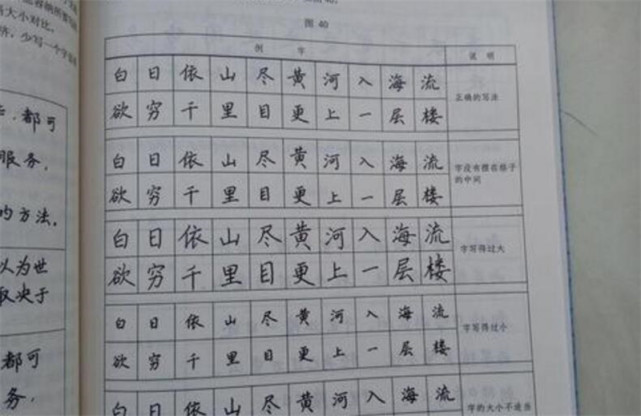 大小对比。
少写一个字
图 40
例 字 说 明
白日依山尽黄河入海流
欲穷千里目更上一层楼
正确的写法
白日依山尽黄河入海流
欲穷千里目更上一层楼
字没有摆在格子
的中间
白日依山尽黄河入海流
欲穷千里目更上一层楼
字写得过大
白日依山尽黄河入海流
欲穷千里目更上一层楼
字写得过小
白日依山尽黄河入海流
字的大小不适当
都可
服务，
的方法。
以为世
取决于
都可
务，